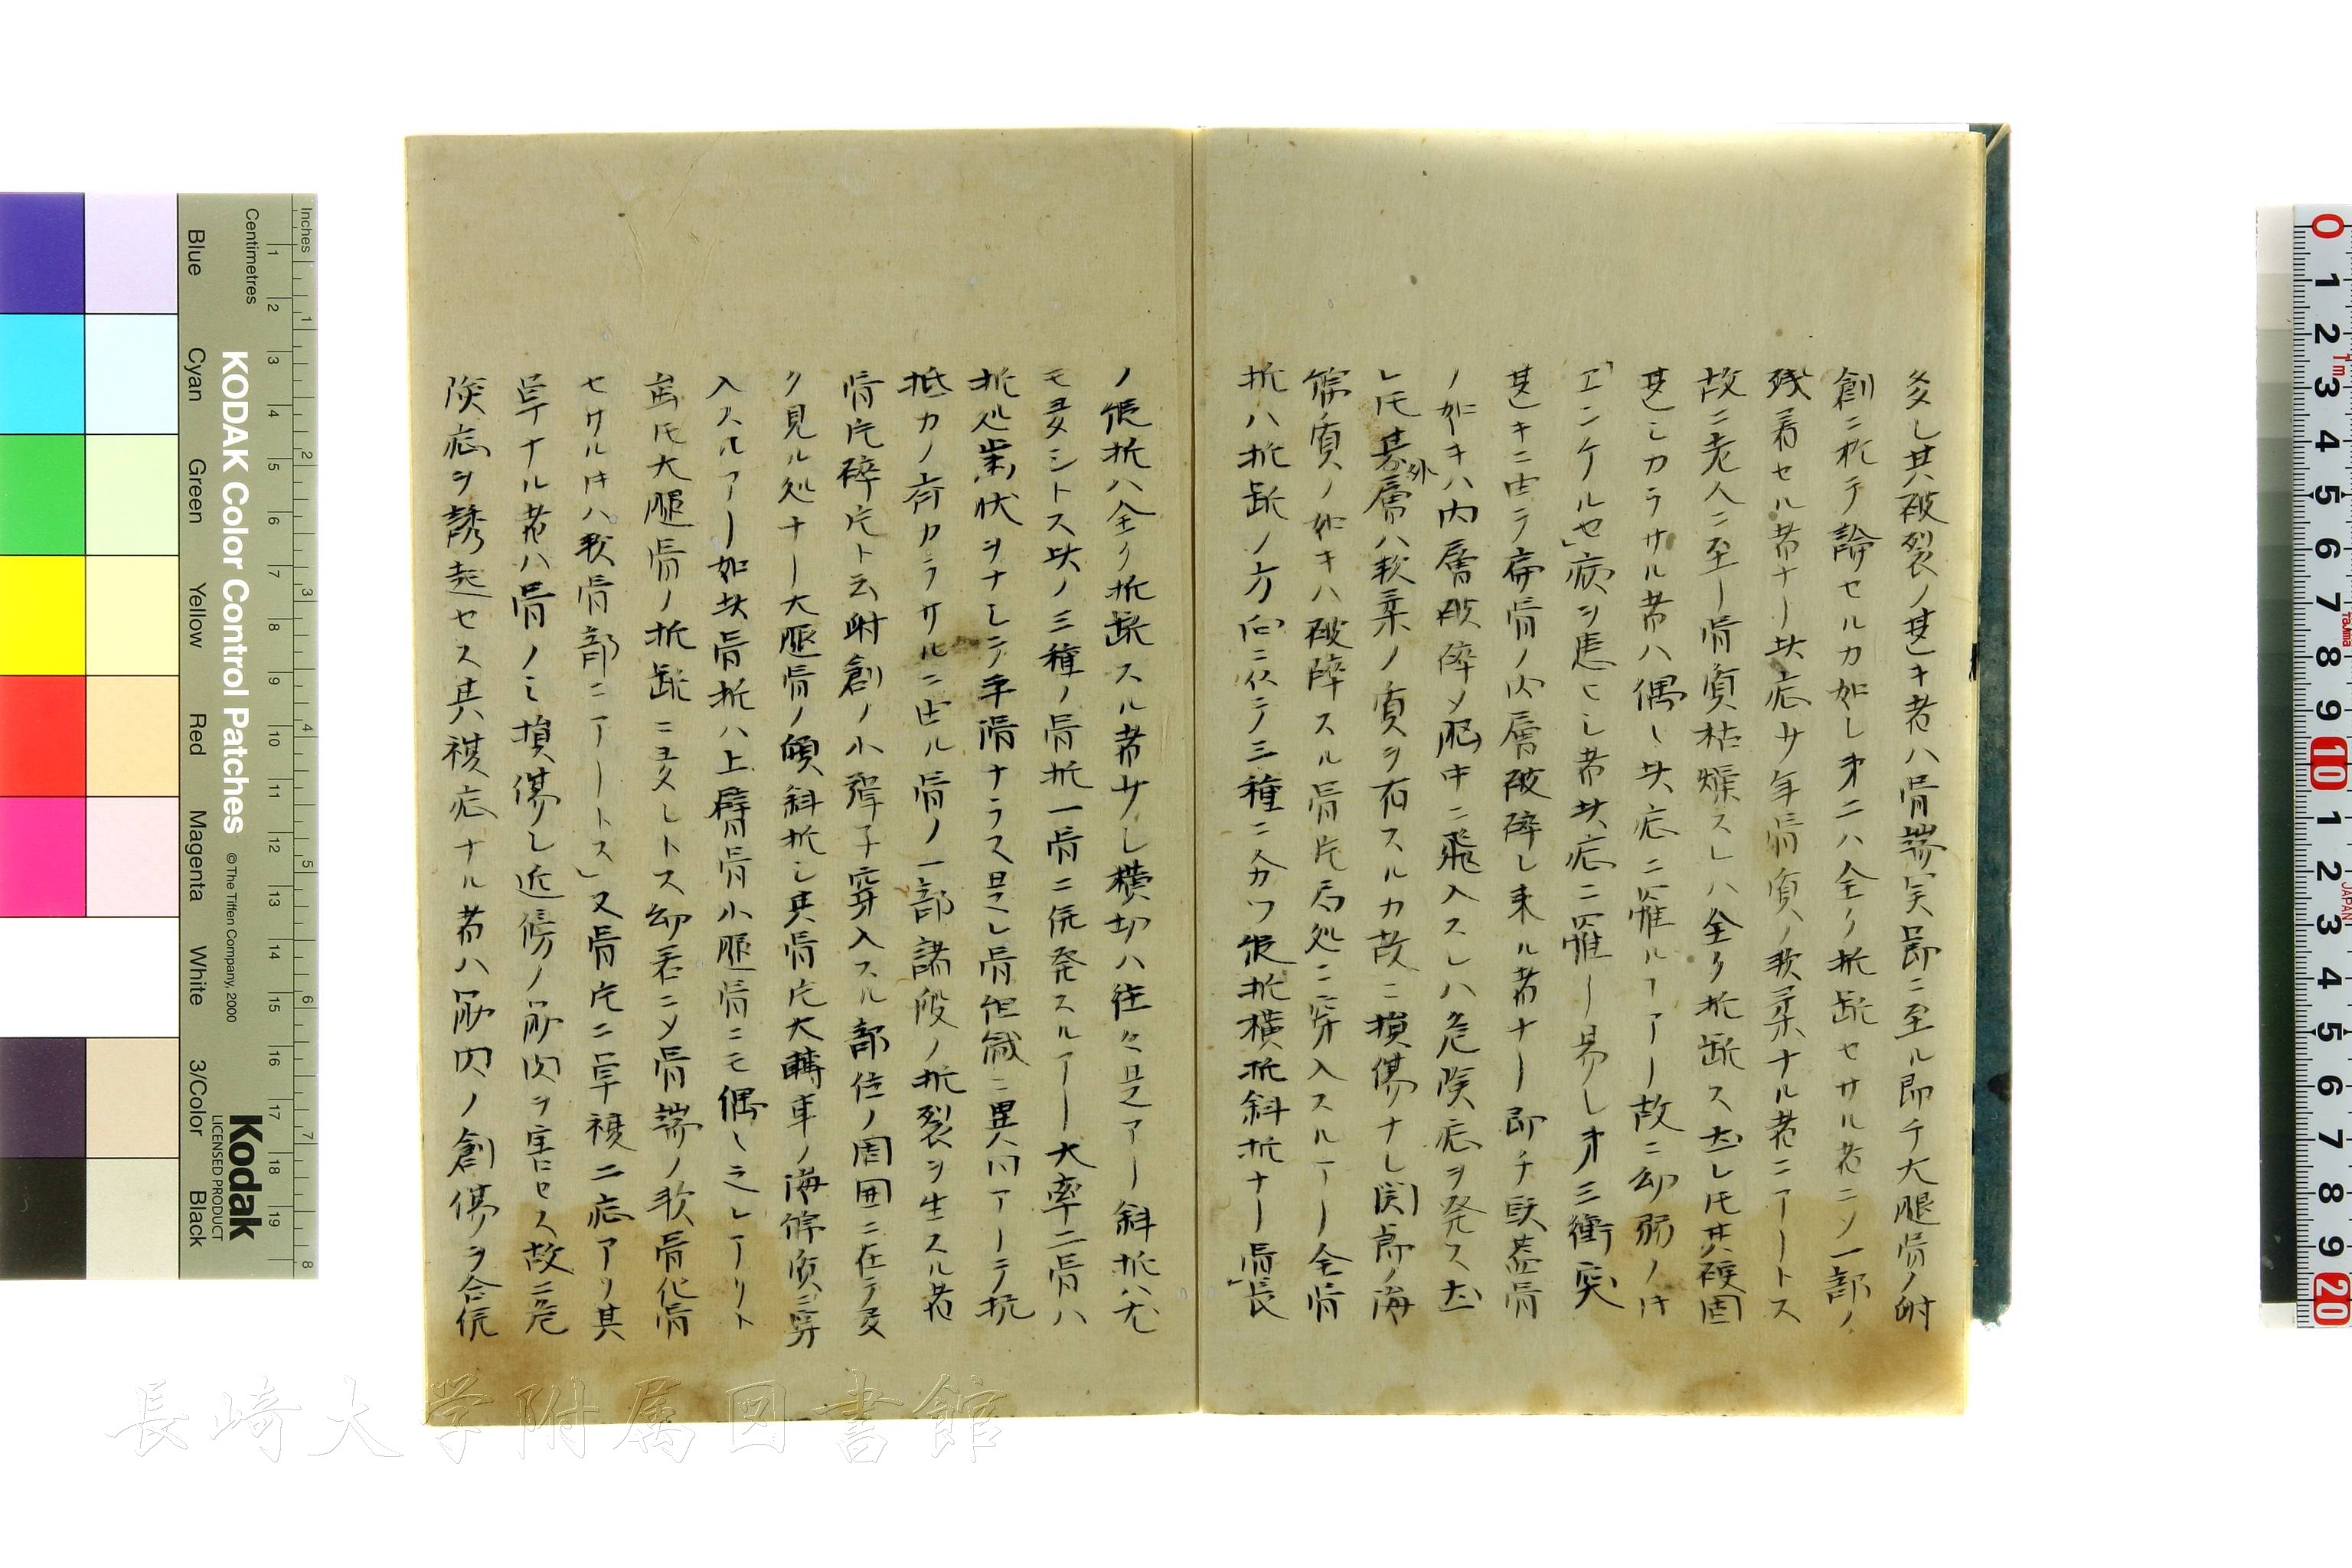 多し其破裂ノ甚キ者ハ骨端実節ニ至ル即チ大腿骨ノ射
創ニ於テ論セルカ如し才二ハ全ク折断セサル者ニ〆一部ノ
残着セル者ナー此症少年骨質ノ軟柔ナル者ニアートス
故ニ老人ニ至ー骨質枯燥スレハ全ク折断ス尤レ𪜈其硬固
甚しカラサル者ハ偶し此症ニ罹ルヿアー故ニ幼弱ノ時
「エンケルセ」病ヲ患しし者此症ニ罹ー易し才三衝突
甚キニ由テ扁骨ノ内層破碎し来ル者ナー即チ頭蓋骨
ノ如キハ内層破碎〆脳中ニ飛入スレハ危険症ヲ発ス尤
レ𪜈其外層ハ軟柔ノ質ヲ有スルカ故ニ損傷ナし関節ノ海
綿質ノ如キハ破碎スル骨片局処ニ穿入スルヿー全骨
折ハ折断ノ方向ニ从テ三種ニ分ツ縦折横折斜折ナー「骨長
ノ縦折ハ全ク折断スル者少し横切ハ往々是アー斜折ハ尤
モ多シトス此ノ三種ノ骨折一骨ニ併発スルヿー大率二骨ハ
折処歯状ヲナして平滑ナラス是レ骨組織ニ異同アーテ抗
抵力ノ斉カラサルニ由ル骨ノ一部諸般ノ折裂ヲ生スル者
骨片碎片ト云射創ノ小弾子穿入スル部位ノ周囲ニ在テ多
ク見ル処ナー大腿骨ノ傾斜折し其骨片大轉車ノ海綿質ニ穿
入スルヿアー如此骨折ハ上臂骨小腿骨ニモ偶し之レアリト
雖𪜈大腿骨ノ折断ニ多しトス幼若ニ〆骨端ノ軟骨化骨
セサル時ハ軟骨部ニアートス」又骨片ニ單複二症アリ其
單ナル者ハ骨ノミ損傷し近傍ノ筋肉ヲ害セス故ニ危
険症ヲ誘起セス其複症ナル者ハ筋肉ノ創傷ヲ合併
KODAK Color Control Patches
© The Tiffen Company, 2000
Kodak
LICENSED PRODUCT
Inches
Centimetres
Blue
Cyan
Green
Yellow
Red
Magenta
White
3/Color
Black
長崎大学附属図書館